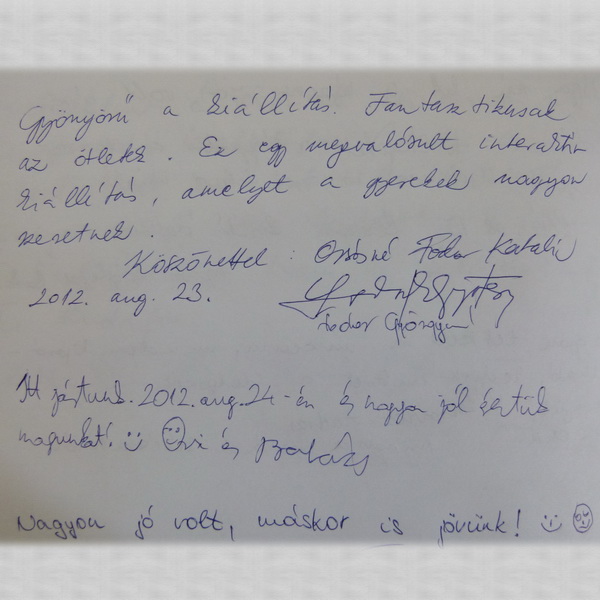 Gyönyörű a kiállítás. Fantasztikusak
az ötletek. Ez egy megvalósult interaktív
kiállítás, amelyet a gyerekek nagyon
szeretnek.
Köszönettel: Fodor Katalin
2012. aug. 23.
Fodor Gyöngyi
Itt jártunk 2012. aug. 24-én és nagyon jól éreztük
magunkat! :) és Balázs
Nagyon jó volt, máskor is jövünk! :)